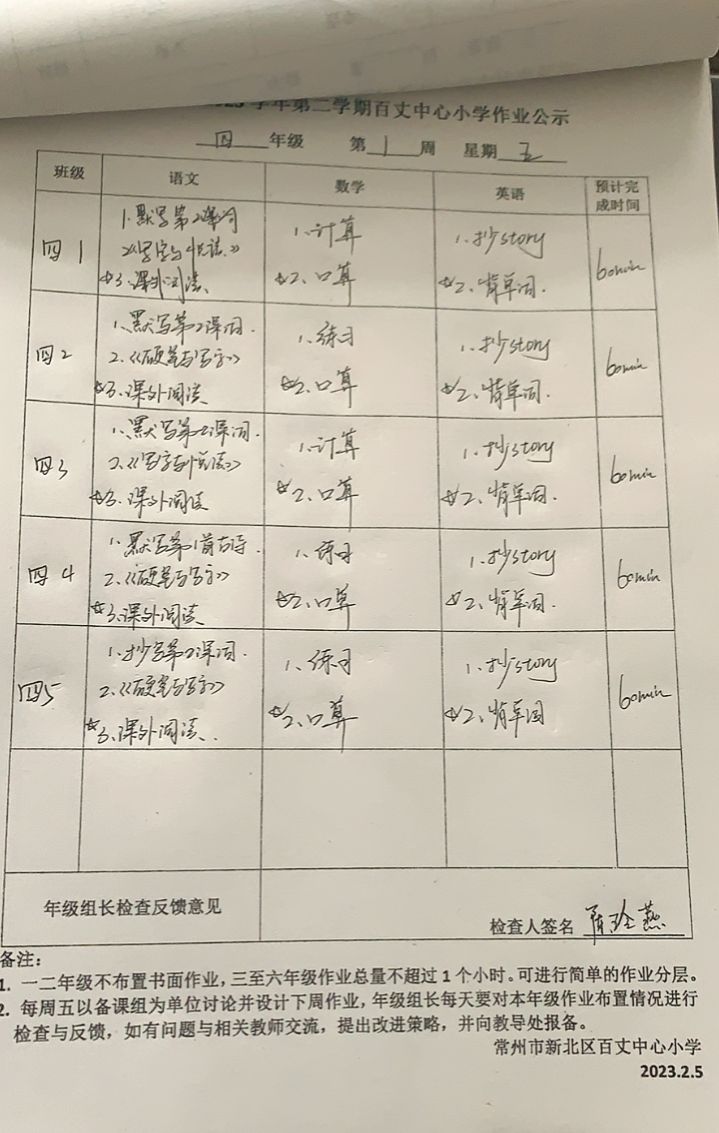 学年第二学期百丈中心小学作业公示
四 年级 第 1 周 星期 五
班级 语文 数学 英语 预计完成时间
四1
1.默写第2课词
2.《写字与悦读》
☆3.课外阅读
1.计算
☆2.口算
1.抄story
☆2.背单词.
60min
四2
1.默写第2课词.
2.《硬笔与写字》
☆3.课外阅读
1.练习
☆2.口算
1.抄story
☆2.背单词.
60min
四3
1.默写第2课词.
2.《写字与悦读》
☆3.课外阅读
1.计算
☆2.口算
1.抄story
☆2.背单词.
60min
四4
1.默写第1首古诗.
2.《硬笔与写字》
☆3.课外阅读
1.练习
☆2.口算
1.抄story
☆2.背单词.
60min
四5
1.抄写第2课词.
2.《硬笔与写字》
☆3.课外阅读.
1.练习
☆2.口算
1.抄story
☆2.背单词
60min
年级组长检查反馈意见
检查人签名
备注:
1. 一二年级不布置书面作业,三至六年级作业总量不超过 1 个小时。可进行简单的作业分层。
2. 每周五以备课组为单位讨论并设计下周作业,年级组长每天要对本年级作业布置情况进行
检查与反馈,如有问题与相关教师交流,提出改进策略,并向教导处报备。
常州市新北区百丈中心小学
2023.2.5